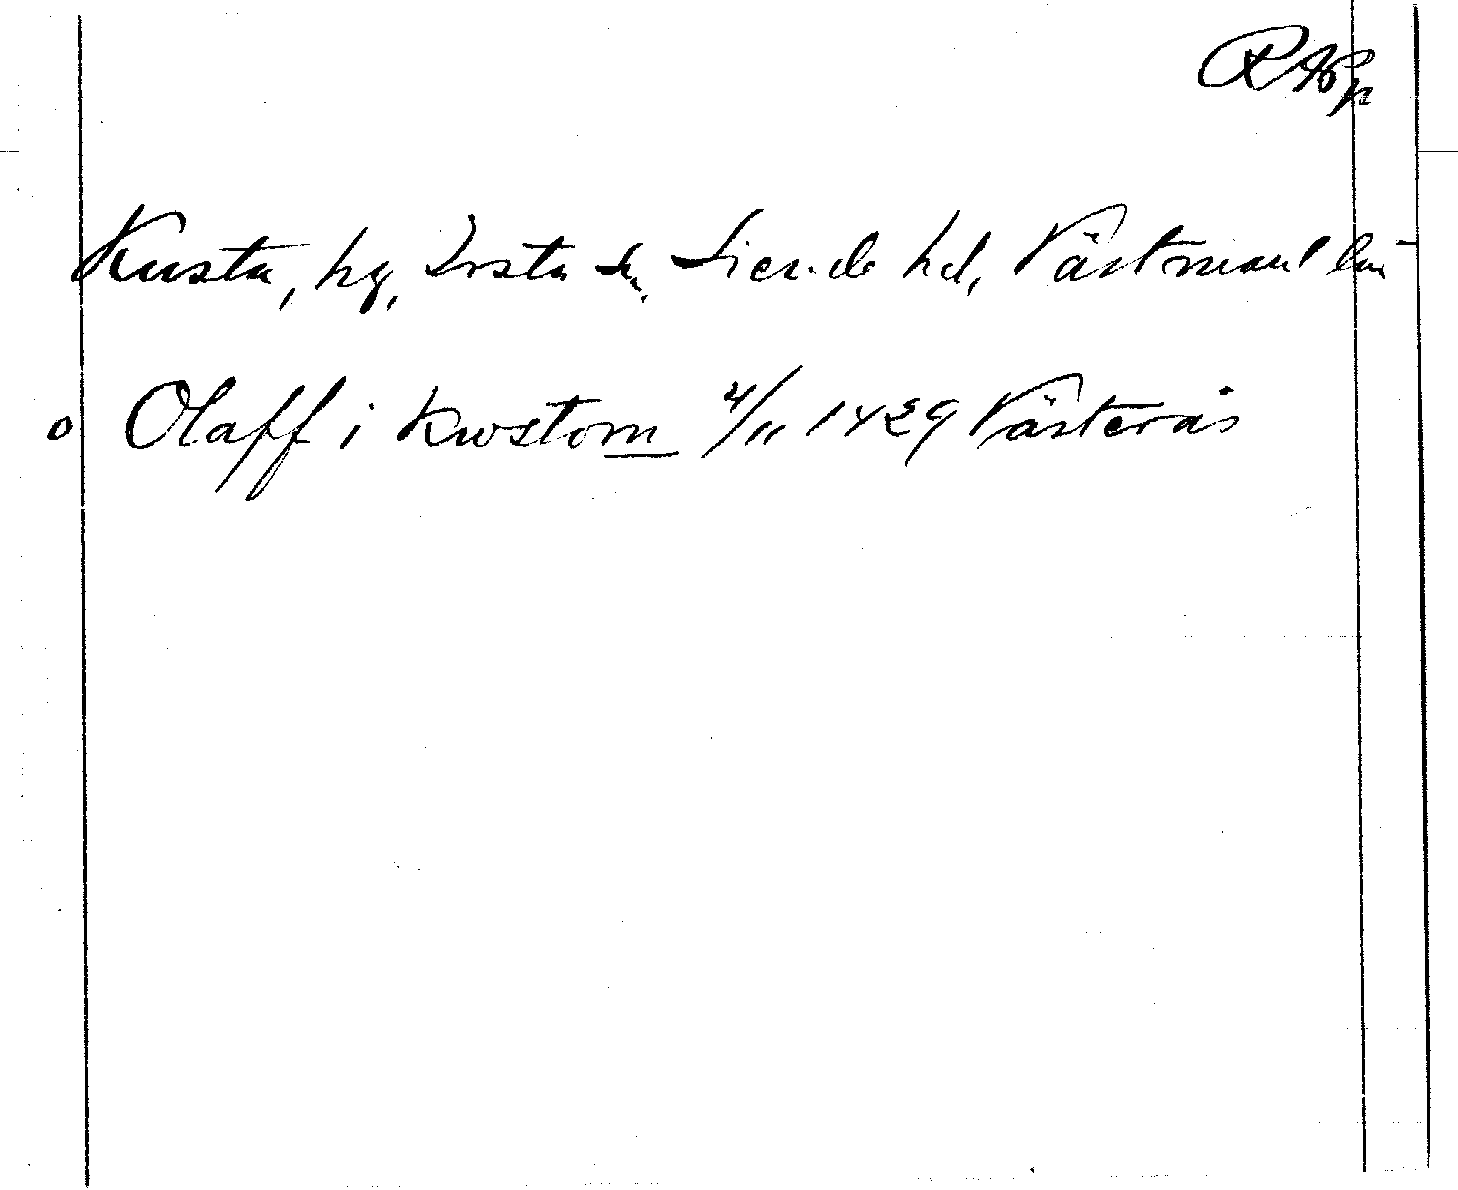 RApp
Kusta, hg, Irsta sn. Siende hd, Västmanl län
o Olaff i Kwstom 4/11 1429 Västerås